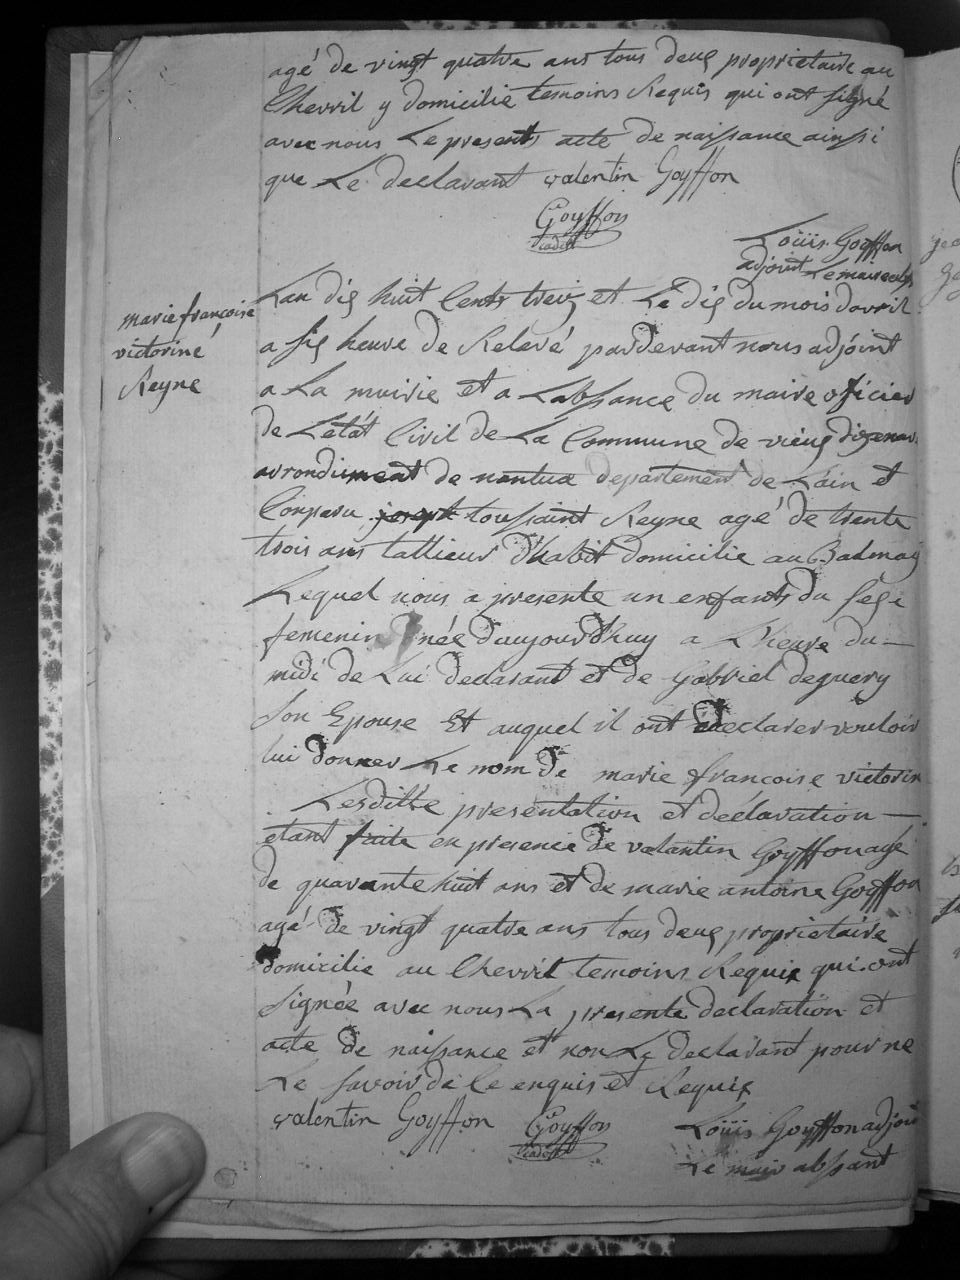 agé de vingt quatre ans tous deux proprietaire au
Chevril y domicilié temoins Requis qui ont signé
avec nous Le presents acte de naissance ainsi
que Le declarant valentin Goyffon
Goyffon
cadet
Louis Goyffon
adjoint Le maire abst
marie françoise
victorine
Reyne
Lan dix huit Cents treiz et Le dix du mois davril
a six heure de Relevé pardevant nous adjoint
a La mairie et a Labssance du maire oficier
de Létat Civil de La Commune de vieux dizenav
arrondiment de nantua departement de Láin et
Comparu joseph toussaint Reyne agé de trente
trois ans tallieur d'habit domicilie au Balmay
Lequel nous a presente un enfants du sexe
femenin née daujourd'huy a L'heure du
midi de Lui declarant et de Gabriel deguery
Son Epouse Et auquel il ont declarer vouloir
lui donner Le nom de marie francoise victorin
Lesditte presentation et declaration
etant faite en presence de valantin Goyffon agé
de quarante huit ans et de marie antoine Goyffon
agé de vingt quatre ans tous deux proprietaire
domicilie au Chevril temoins Requix qui ont
signée avec nous La presente declaration et
acte de naissance et non Le declarant pour ne
Le savoir de Ce enquis et Requix
valentin Goyffon
Goyffon
cadet
Louis Goyffon adjoin
Le mair abssant